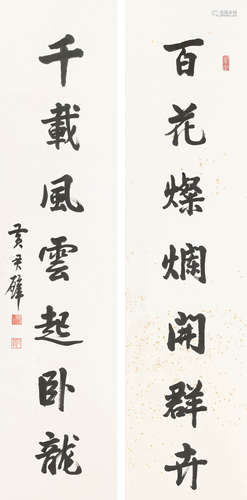 百花燦爛開群卉
千載風雲起臥龍
黃君璧